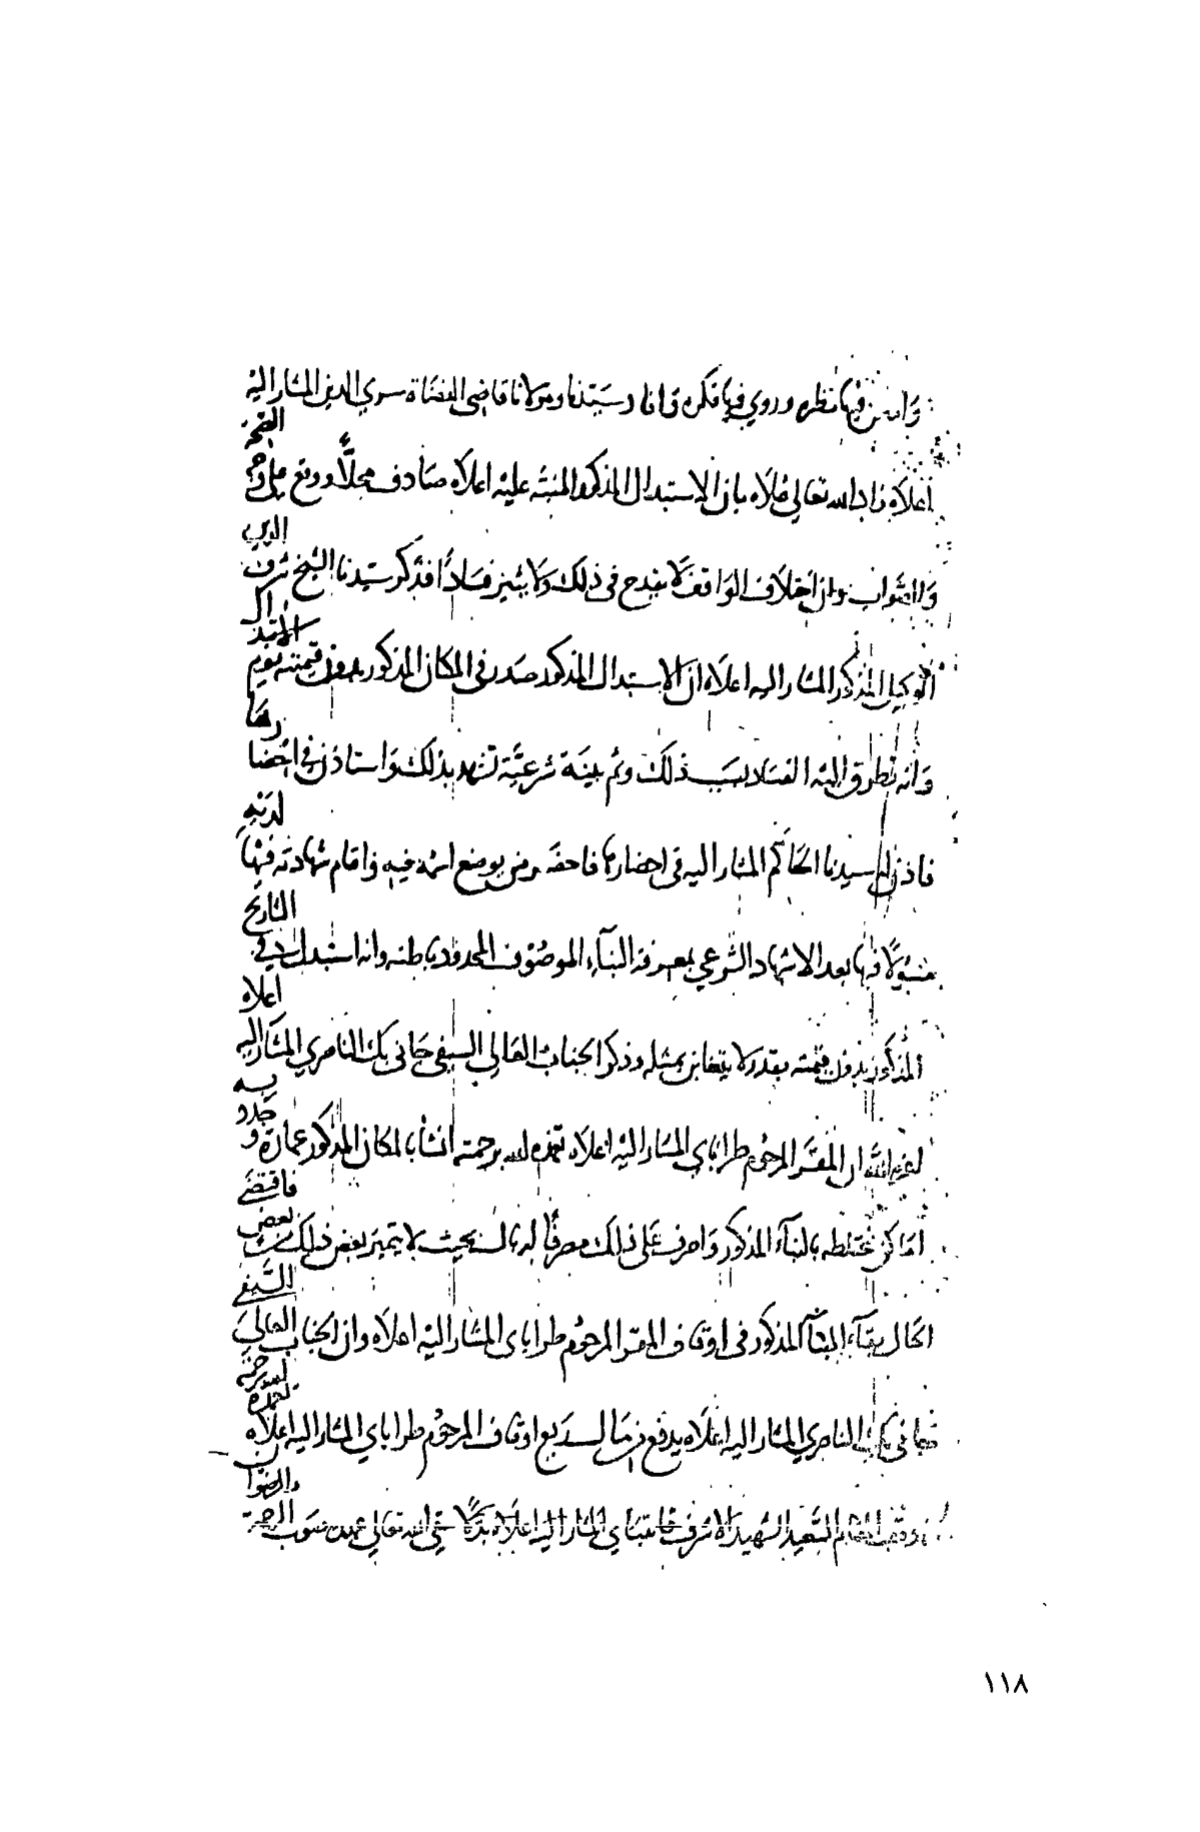 وامعن فيها نظره وروي فيها فكره فافاد سيدنا ومولانا قاضي القضاة سري الدين المشار اليه
اعلاه زاد الله تعالي علاه بان الاستبدال المذكور المنبه عليه اعلاه صادف محلاً ووقع علي وجه الصحة
والصواب وان خلاف الواقف لا يقدح في ذلك ولا يثير فساداً فذكر سيدنا الشيخ شرف الدين
الوكيل المذكور المشار اليه اعلاه ان الاستبدال المذكور صدر في المكان المذكور بدون قيمته يوم الاستبدال
وانه تطرق اليه الفساد بسبب ذلك وثم بينة شرعية تشهد بذلك واستاذن في احضارها
فاذن له سيدنا الحاكم المشار اليه في احضارها فاحضر من يوضع اسمه فيه واقام شهادته فيها لديه
مقبولا فيها بعد الاشهاد الشرعي بمعرفة البناء الموصوف المحدود باطنه وانه استبدل في التاريخ
المذكور بدون قيمته بقدر لا يتغابن بمثله وذكر الجناب العالي السيفي جاني بك الناصري المشار اليه اعلاه
ان المقر المرحوم طراباي المشار اليه اعلاه تغمده الله برحمته انشأ بالمكان المذكور عمارة وجدد به
اماكن مختلطة بالبناء المذكور واصرف علي ذلك مصرفاً له بحيث لا يتميز بعض ذلك من بعض فاقتضي
الحال بقاء البناء المذكور في اوقاف المقر المرحوم طراباي المشار اليه اعلاه وان الجناب العالي السيفي
جاني بك الناصري المشار اليه اعلاه يدفع من مال ريع اوقاف المرحوم طراباي المشار اليه اعلاه تغمده الله برحمته
السعيد الشهيد الاشرف قايتباي المشار اليه اعلاه سقي الله تعالي عهده صوب الرحمة والرضوان
١١٨